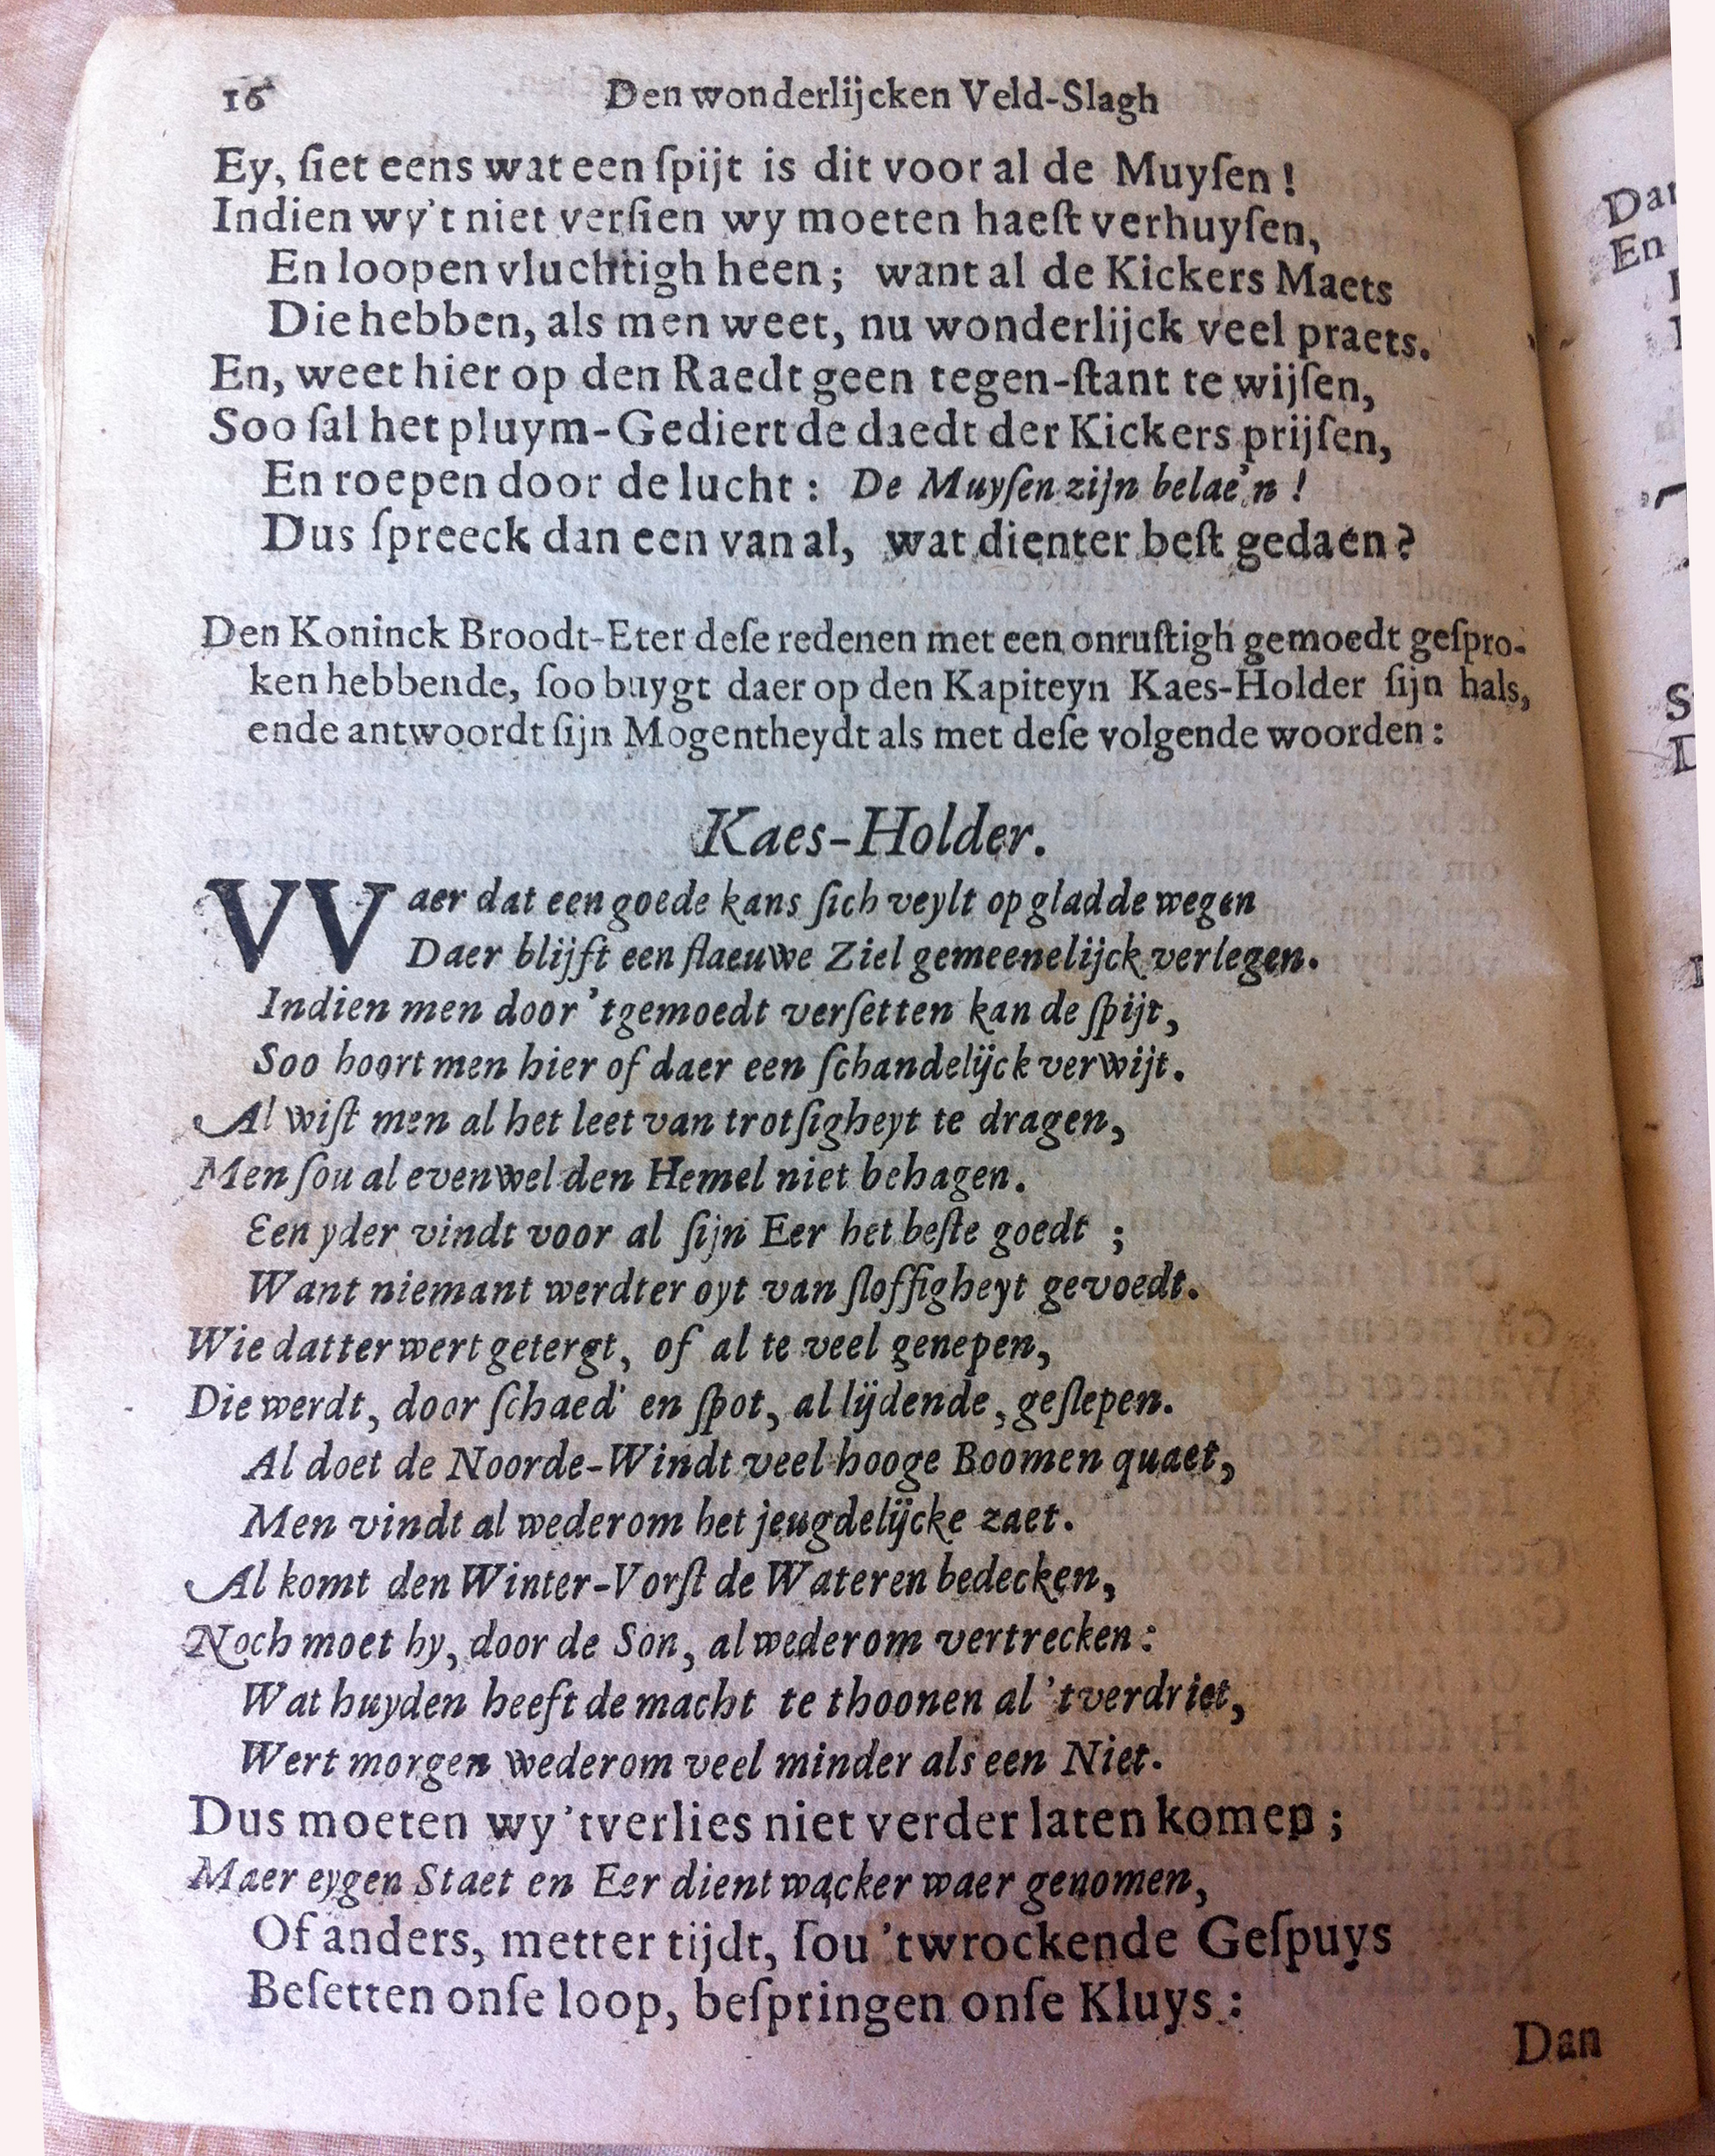 16 Den wonderlijcken Veld-Slagh
Ey, ſiet eens wat een ſpijt is dit voor al de Muyſen !
Indien wy't niet verſien wy moeten haeſt verhuyſen,
En loopen vluchtigh heen ; want al de Kickers Maets
Die hebben, als men weet, nu wonderlijck veel praets.
En, weet hier op den Raedt geen tegen-ſtant te wijſen,
Soo ſal het pluym-Gediert de daedt der Kickers prijſen,
En roepen door de lucht : De Muyſen zijn belae'n !
Dus ſpreeck dan een van al, wat dienter beſt gedaen?
Den Koninck Broodt-Eter deſe redenen met een onruſtigh gemoedt geſpro-
ken hebbende, ſoo buygt daer op den Kapiteyn Kaes-Holder ſijn hals,
ende antwoordt ſijn Mogentheydt als met deſe volgende woorden :
Kaes-Holder.
VVaer dat een goede kans ſich veylt op gladde wegen
Daer blijft een flaeuwe Ziel gemeenelijck verlegen.
Indien men door 'tgemoedt verſetten kan de ſpijt,
Soo hoort men hier of daer een ſchandelijck verwijt.
Al wiſt men al het leet van trotſigheyt te dragen,
Men ſou al evenwel den Hemel niet behagen.
Een yder vindt voor al ſijn Eer het beſte goedt ;
Want niemant werdter oyt van ſloffigheyt gevoedt.
Wie datter wert getergt, of al te veel genepen,
Die werdt, door ſchaed' en ſpot, al lijdende, geſlepen.
Al doet de Noorde-Windt veel hooge Boomen quaet,
Men vindt al wederom het jeugdelijcke zaet.
Al komt den Winter-Vorſt de Wateren bedecken,
Noch moet hy, door de Son, al wederom vertrecken :
Wat huyden heeft de macht te thoonen al 'tverdriet,
Wert morgen wederom veel minder als een Niet.
Dus moeten wy 'tverlies niet verder laten komen ;
Maer eygen Staet en Eer dient wacker waer genomen,
Of anders, metter tijdt, ſou 'twrockende Geſpuys
Beſetten onſe loop, beſpringen onſe Kluys :
Dan
En